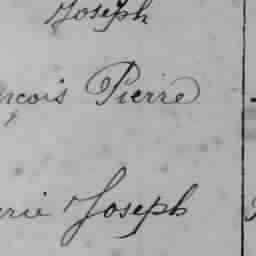 Joseph
ncois Pierre
erie Joseph